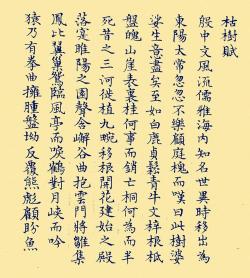 枯樹賦
殷中文風流儒雅海內知名世異時移出為
東陽太常忽忽不樂顧庭槐而嘆曰此樹婆
娑生意盡矣至如白鹿貞鬆青牛文梓根柢
盤魄山崖表裏桂何事而銷亡桐何為而半
死昔之三河徙植九畹移根開花建始之殿
落實睢陽之園聲含嶰谷曲抱雲門將雛集
鳳比翼巢鴛臨風亭而唳鶴對月峽而吟
猿乃有拳曲擁腫盤坳反覆熊彪顧盼魚